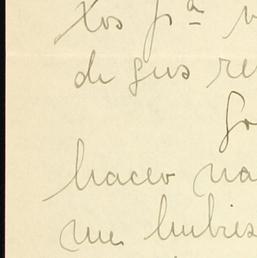 tos pª
de sus re
hacer na
me hubies